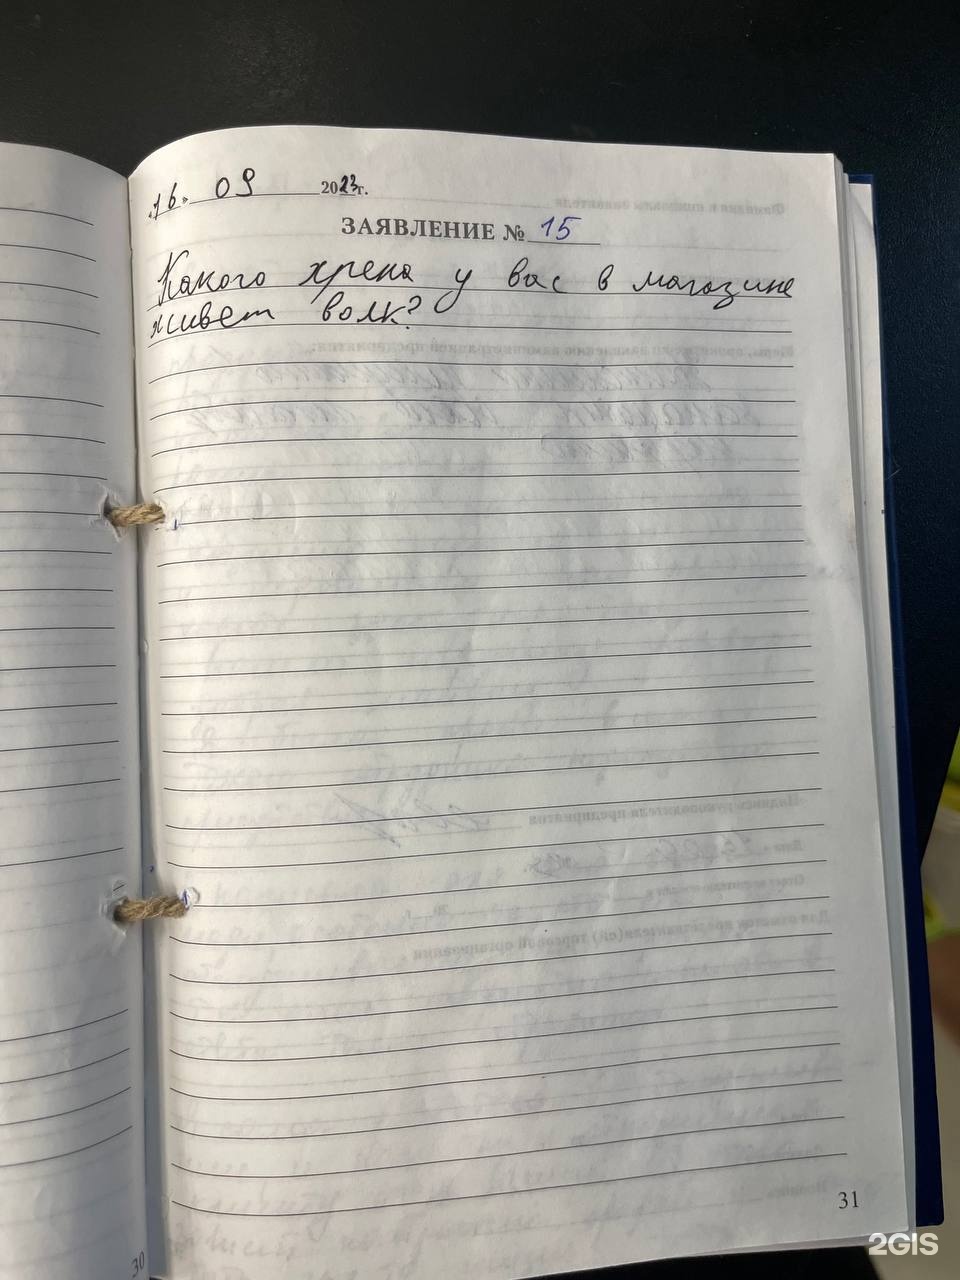 «16» 09 2023г.
ЗАЯВЛЕНИЕ № 15
Какого хрена у вас в магазине
живет волк?
30
31
2GIS